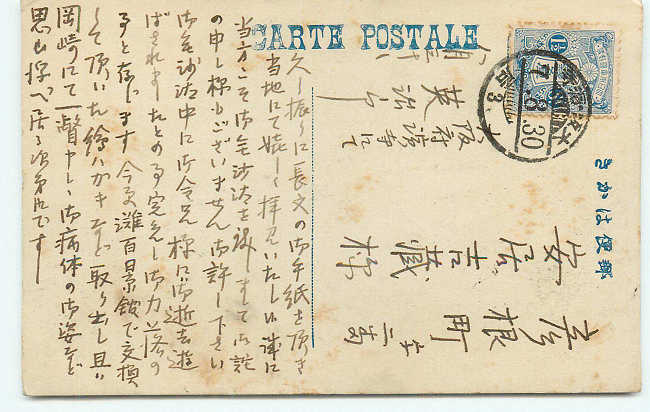 CARTE POSTALE
きかは便郵
彦根町
安居吉藏様
大阪府
英治
7.8.30
久し振りに長文の御手紙を頂き
当地にて嬉しく拝見いたしました 誠に
当方こそ御無沙汰を致しまして御詫
の申し様もございません 御許し下さい
御無沙汰中に御令兄様に御逝去遊
ばされましたとの事 御力落の
事と存じます 今 灘百景館で交換
して頂いた絵ハガキなど取り出し 且ハ
岡崎にて一瞥申しし御病体の御姿など
思ひ浮べ居る次第です